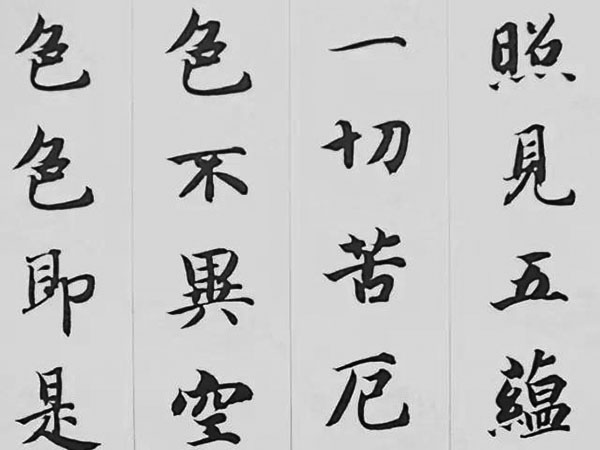 照見五蘊
一切苦厄
色不異空
色色即是